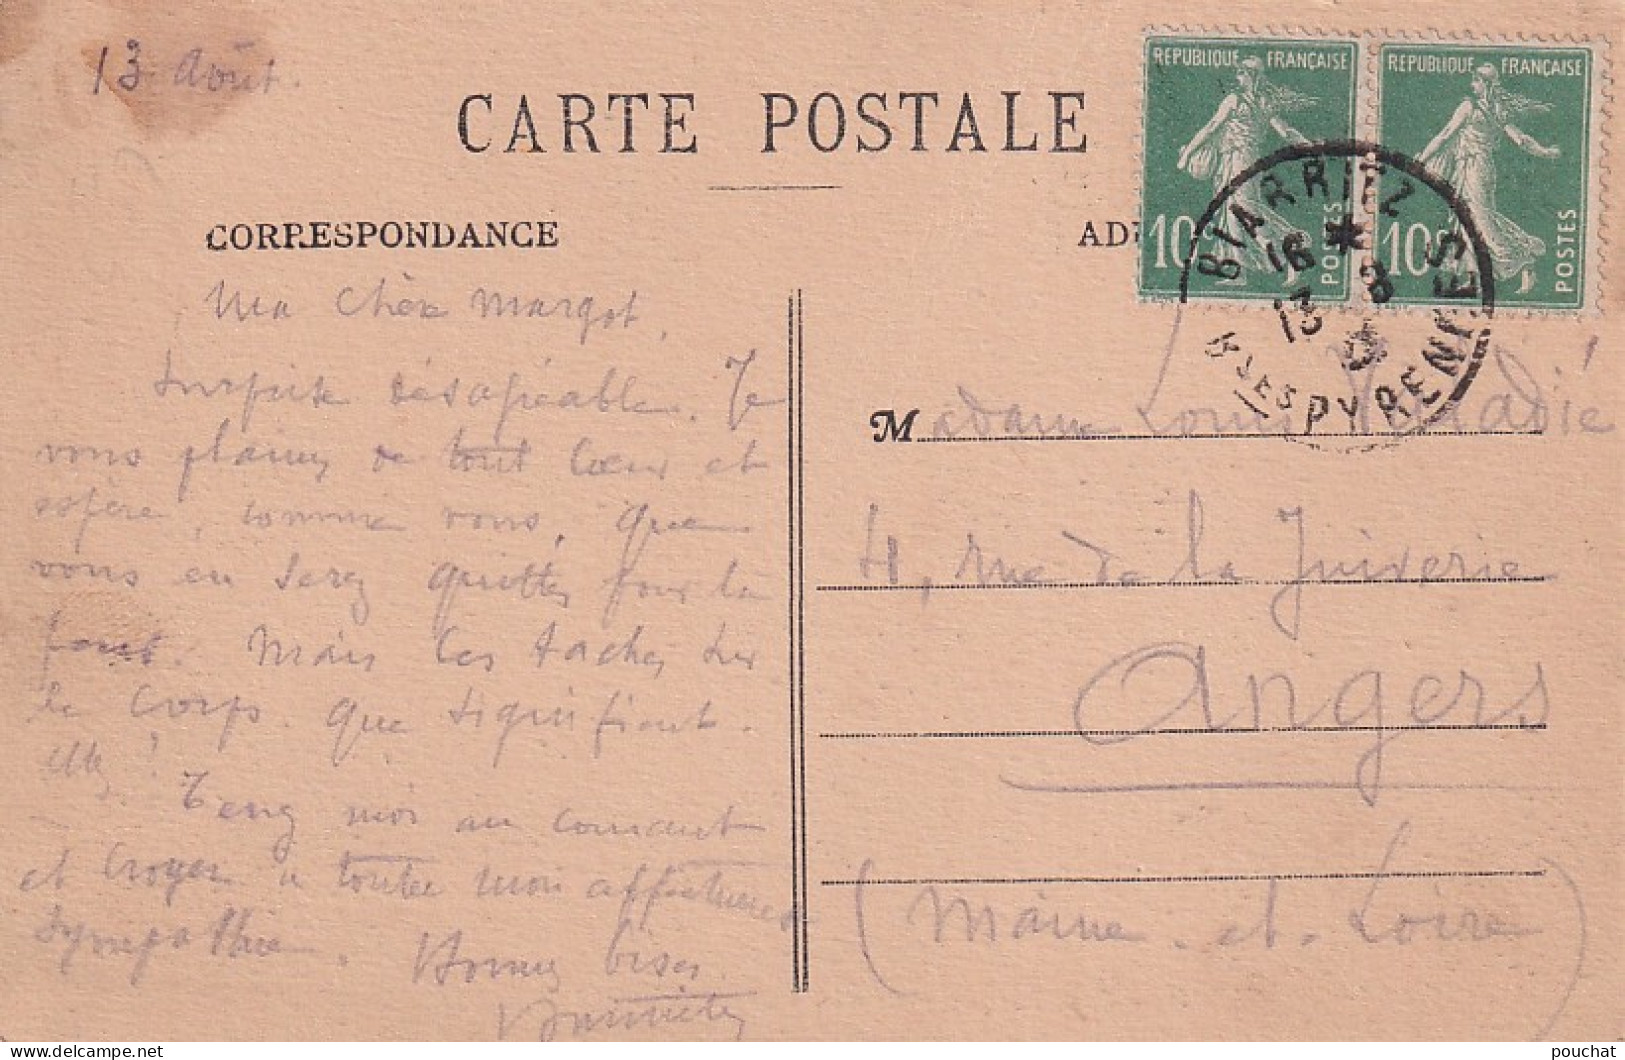 13 Août.
CARTE POSTALE
RÉPUBLIQUE FRANÇAISE
10c POSTES
RÉPUBLIQUE FRANÇAISE
10c POSTES
BIARRITZ
16 *
13 8
Bses PYRENEES
CORRESPONDANCE
AD
Ma Chère Margot,
Surprise désagréable. Je
vous plains de tout Cœur et
espère, comme vous, que
vous en serez quittes pour la
. Mais ces taches sur
le Corps. Que signifient.
elles!
Tenez moi au courant
et croyez à toute mon affectueuse
sympathie. Bonnes bises.
Madame Louis
4, rue de la Juiverie
Angers
(Maine-et-Loire)
pouchat